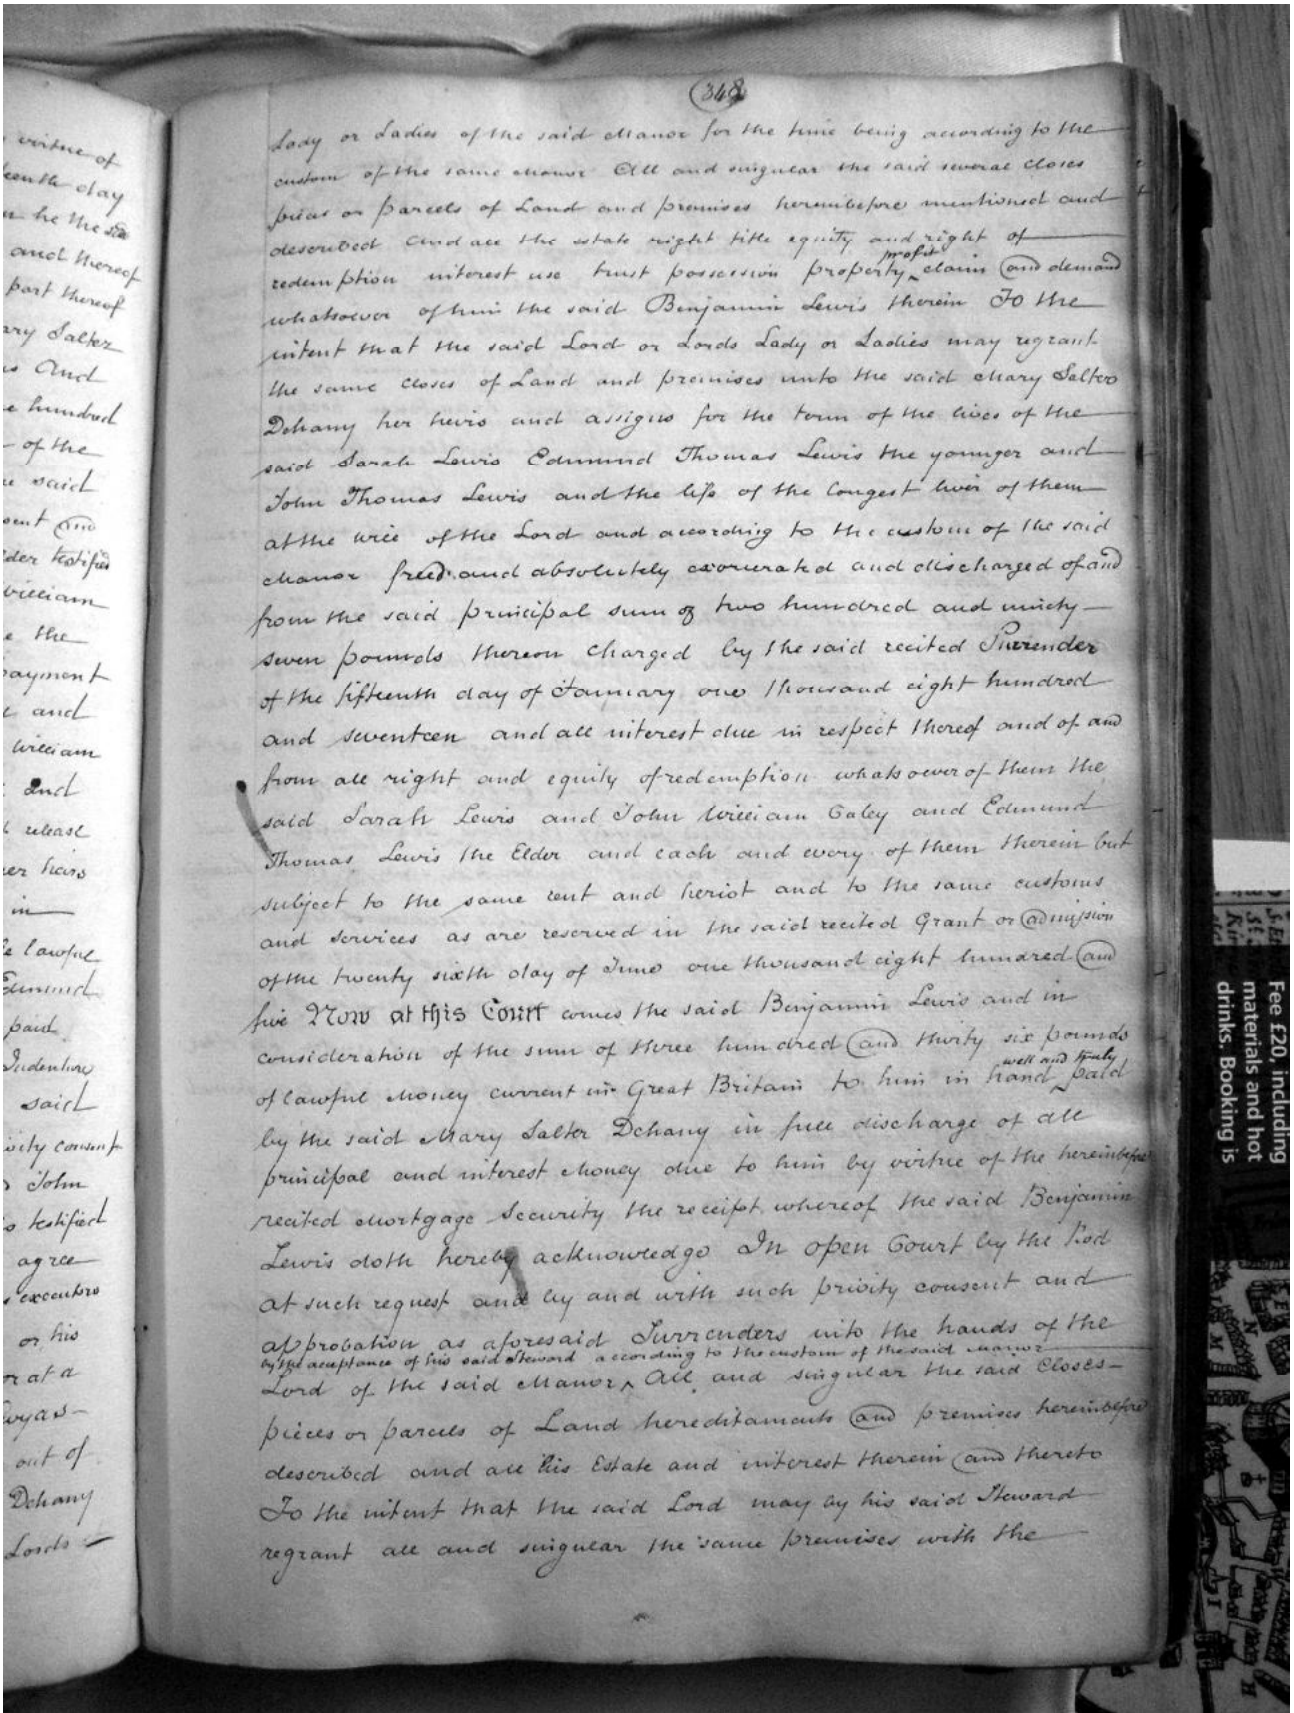 virtue of
day
he the sd
and thereof
part thereof
Salter
And
hundred
of the
said
and
testified
William
the
payment
and
William
and
release
heirs
in
lawful
Edmund
paid
Indenture
said
consent
John
testified
agree
executors
or his
or at a
out of
Dehany
Lords
348
Lady or Ladies of the said Manor for the time being according to the
custom of the same Manor All and singular the said several closes
pieces or parcels of Land and premises hereinbefore mentioned and
described and all the estate right title equity and right of
redemption interest use trust possession property profit claim and demand
whatsoever of him the said Benjamin Lewis therein To the
intent that the said Lord or Lords Lady or Ladies may regrant
the same closes of Land and premises unto the said Mary Salter
Dehany her heirs and assigns for the term of the lives of the
said Sarah Lewis Edmund Thomas Lewis the younger and
John Thomas Lewis and the life of the longest liver of them
at the will of the Lord and according to the custom of the said
Manor freed and absolutely exonerated and discharged of and
from the said principal sum of two hundred and ninety
seven pounds thereon charged by the said recited Surrender
of the fifteenth day of January one thousand eight hundred
and seventeen and all interest due in respect thereof and of and
from all right and equity of redemption whatsoever of them the
said Sarah Lewis and John William Caley and Edmund
Thomas Lewis the Elder and each and every of them therein but
subject to the same rent and heriot and to the same customs
and services as are reserved in the said recited Grant or admission
of the twenty sixth day of June one thousand eight hundred and
five Now at this Court comes the said Benjamin Lewis and in
consideration of the sum of three hundred and thirty six pounds
of lawful Money current in Great Britain to him in hand well and truly paid
by the said Mary Salter Dehany in full discharge of all
principal and interest Money due to him by virtue of the hereinbefore
recited Mortgage Security the receipt whereof the said Benjamin
Lewis doth hereby acknowledge In open Court by the Rod
at such request and by and with such privity consent and
approbation as aforesaid Surrenders into the hands of the
by the acceptance of his said Steward according to the custom of the said Manor
Lord of the said Manor All and singular the said Closes
pieces or parcels of Land hereditaments and premises hereinbefore
described and all his Estate and interest therein and thereto
To the intent that the said Lord may by his said Steward
regrant all and singular the same premises with the
Fee £20, including
materials and hot
drinks. Booking is